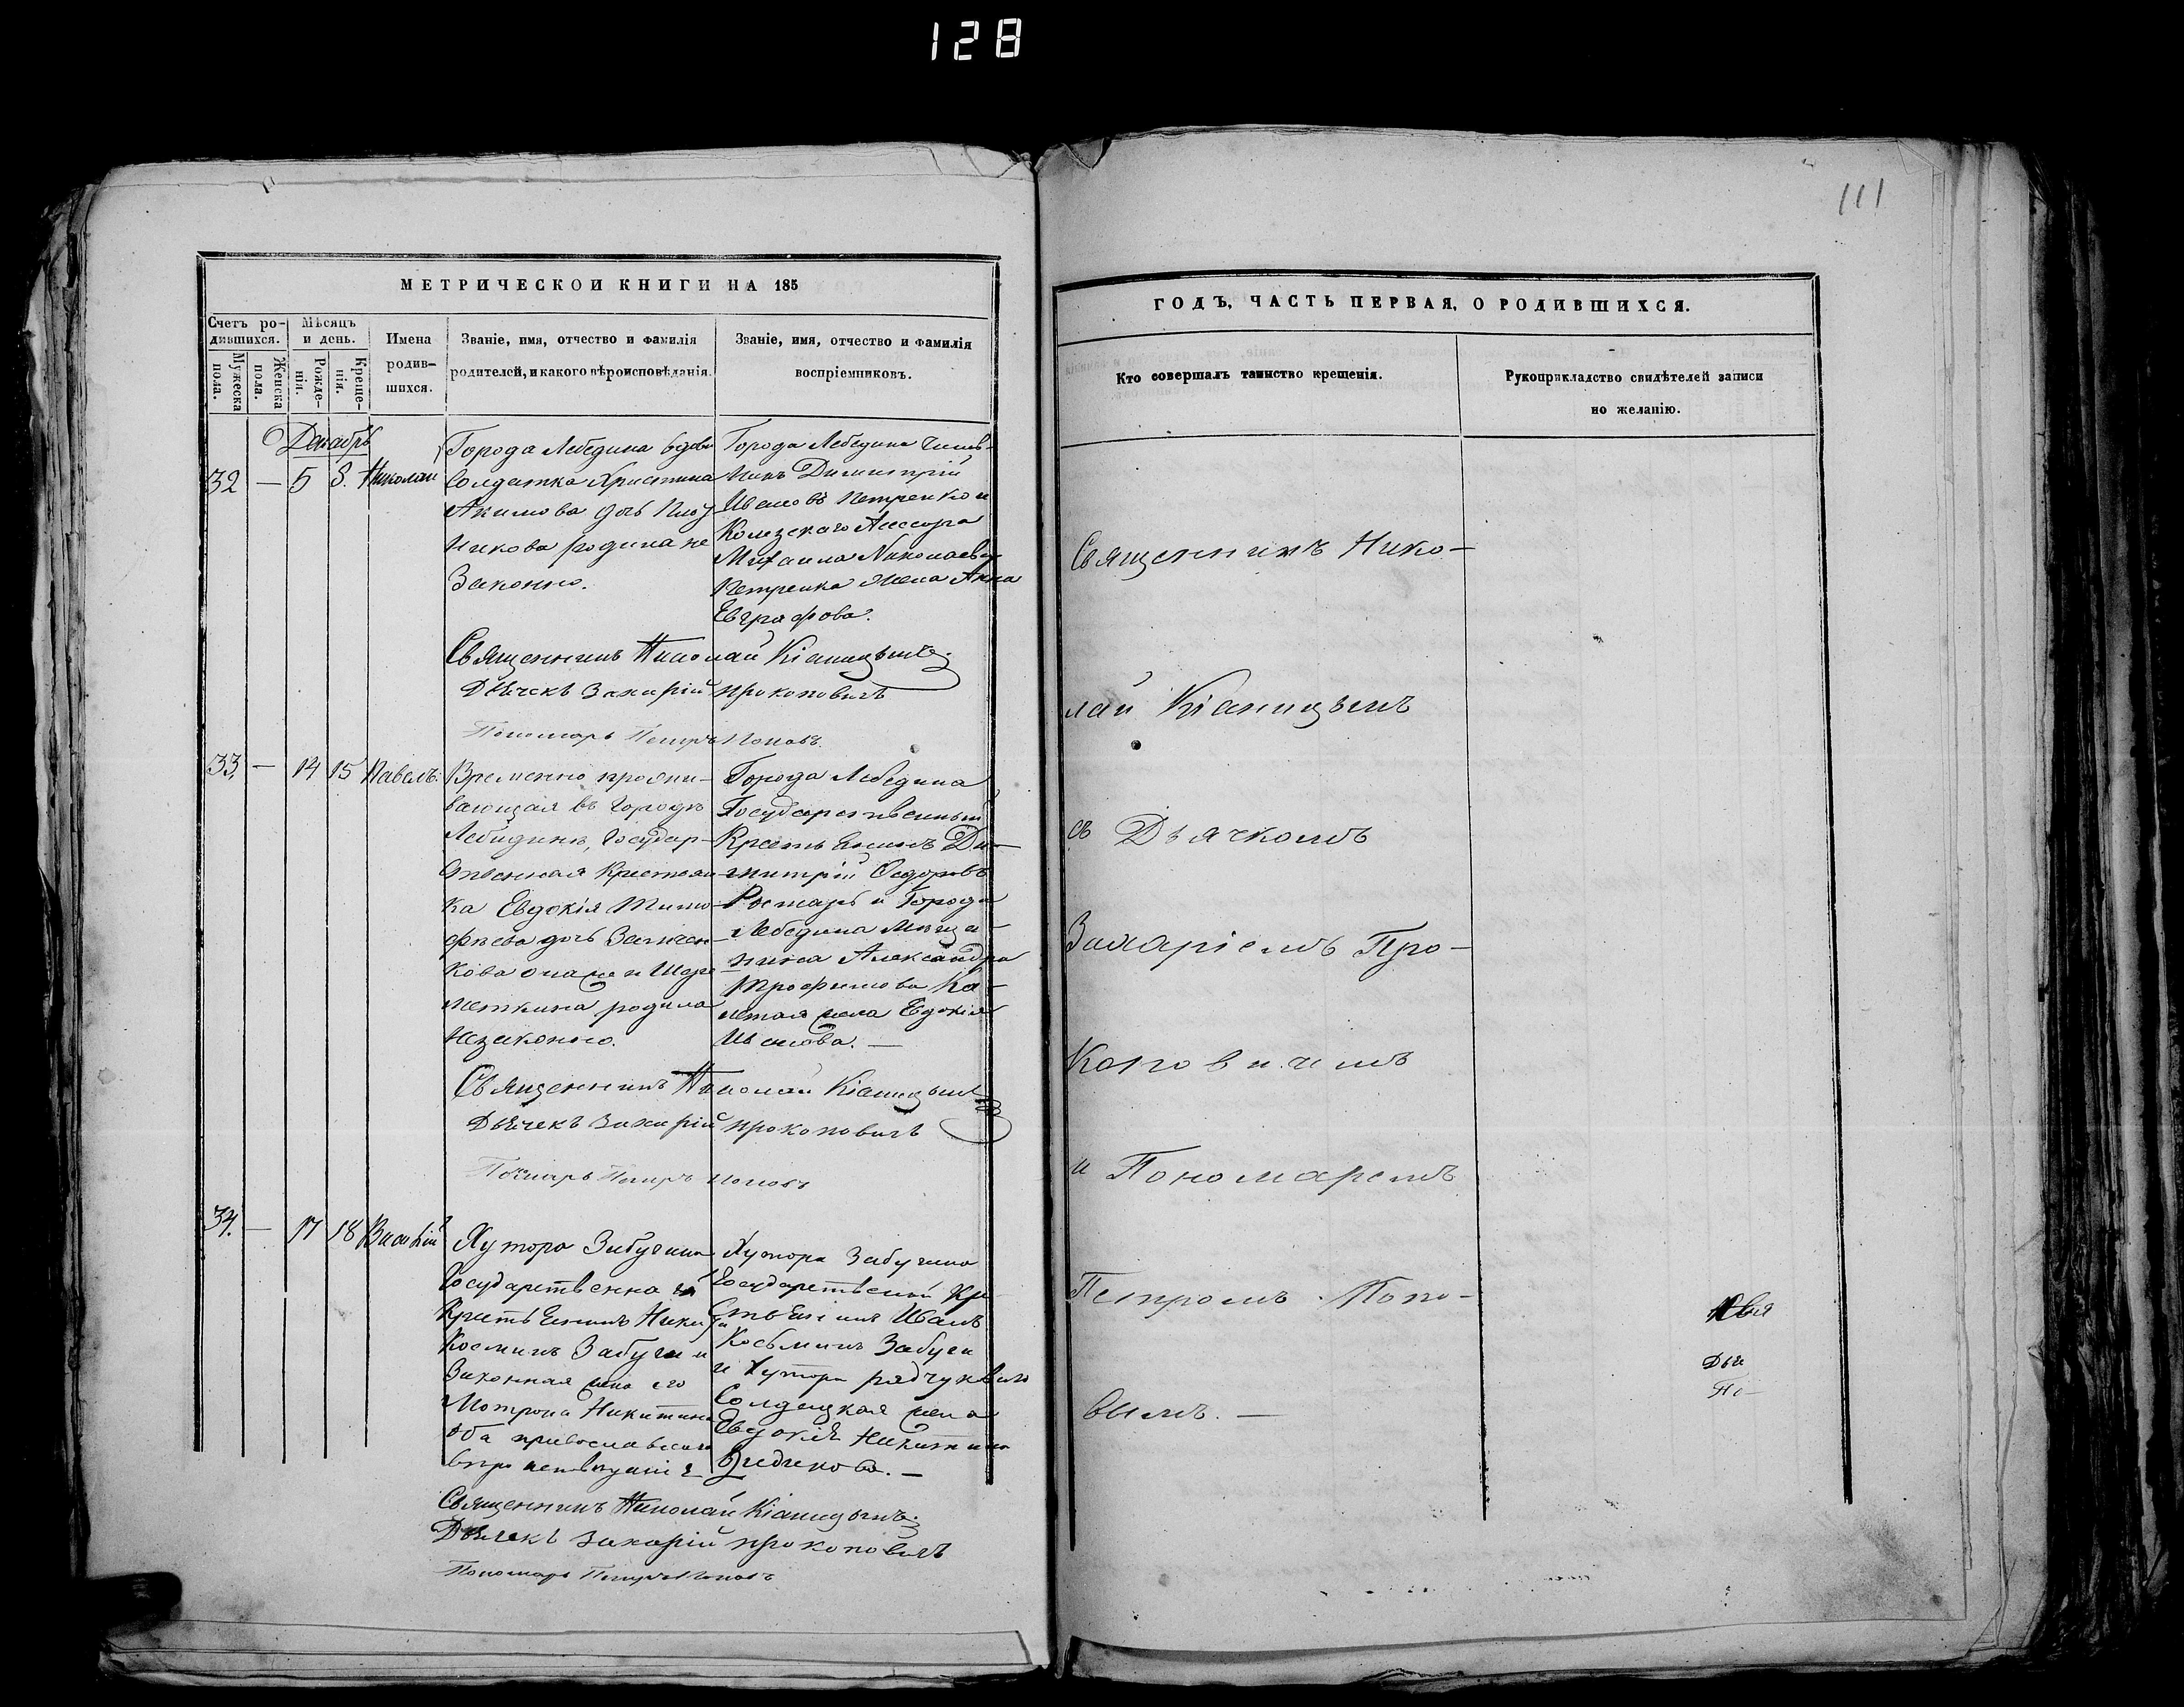 128
111
МЕТРИЧЕСКОИ КНИГИ НА 185
Счетъ ро-
дившихся.
Мѣсяцъ
и день.
Мужеска
пола.
Женска
пола.
Рожде-
нія.
Креще-
нія.
Имена
родив-
шихся.
Званіе, имя, отчество и фамилія
родителей, и какого вѣроисповѣданія.
Званіе, имя, отчество и фамилія
воспріемниковъ.
Декабрь
32 — 5 8. Николай
Города Лебедина вдова
Солдатка Христина
Акимова дочь
родила не
Законно.
Города Лебедина
Димитрій
Ивановъ Петренко и
Колезскаго Ассесора
Михаила Николаева
Петренка жена Анна
Евграфова.
Священникъ Николай Кіаницынъ
Дьячекъ Захарій Прокоповичъ
Пономарь Петръ Поповъ
33. — 14 15 Павелъ.
Временно прожи-
вающая въ Городѣ
Лебединѣ, Государ-
ственная Крестьян-
ка Евдокія Тимо-
фѣева дочь
Кова она же и
родила
незаконно.
Города Лебедина
Государственный
Крестьянинъ Ди-
митрій Федоровъ
и Города
Лебедина Мѣща-
нина Александра
Трофимова Ка-
жена Евдокія
Иванова. —
Священникъ Николай Кіаницынъ
Дьячекъ Захарій Прокоповичъ
Пономарь Петръ Поповъ
34. — 17 18 Василій
Хутора Забугина
Государственный
Крестьянинъ Никита
Косминъ Забуга и
Законная жена его
Мотрона Никитина
оба православнаго
вѣроисповѣданія
Хутора Забугина
Государственный Кре
стьянинъ Иванъ
Косьминъ Забуга
и Хутора
Солдацкая жена
Евдокія Никитина
Священникъ Николай Кіаницынъ.
Дьячекъ Захарій Прокоповичъ
Пономарь Петръ Поповъ
ГОДЪ, ЧАСТЬ ПЕРВАЯ, О РОДИВШИХСЯ.
Кто совершалъ таинство крещенія.
Рукоприкладство свидѣтелей записи
по желанію.
Священникъ Нико-
лай Кіаницынъ
съ Дьячкомъ
Захаріемъ Про-
коповичемъ
и Пономаремъ
Петромъ Попо-
вымъ. —
Дья
По-